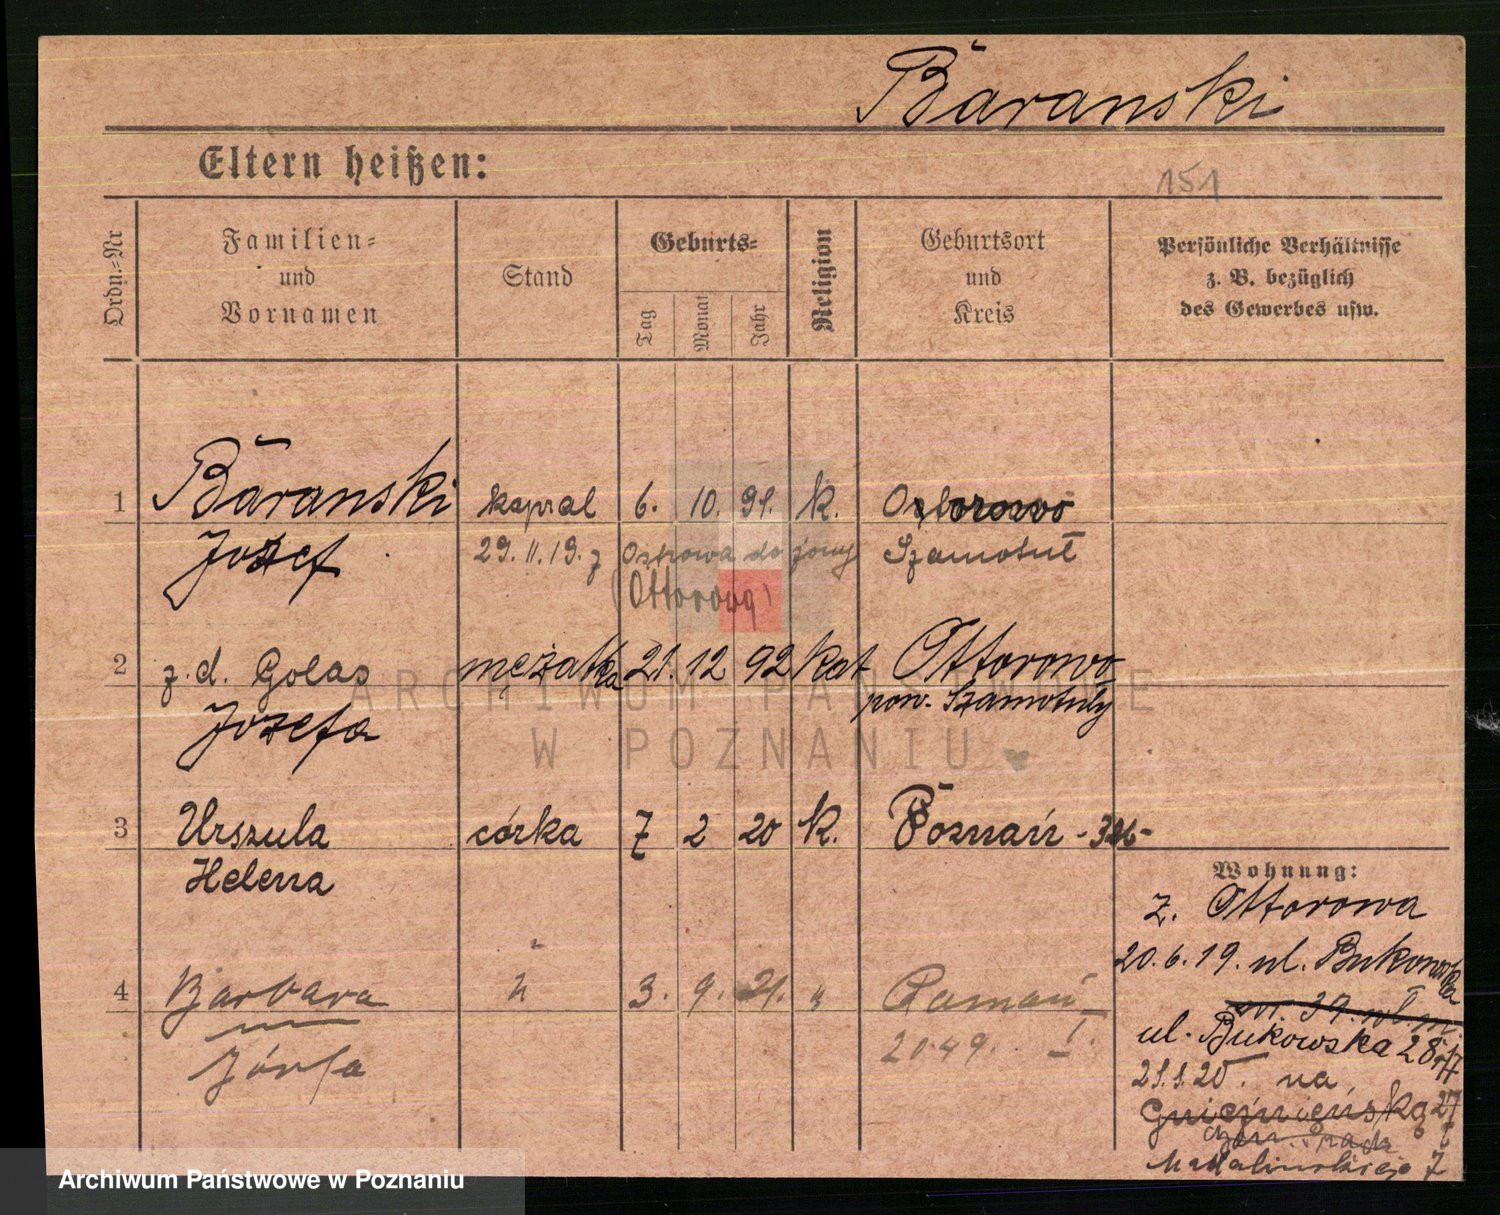 Baranski
Eltern heißen:
151
Ordn.-Nr
Familien-
und
Vornamen
Stand
Geburts-
Tag
Monat
Jahr
Religion
Geburtsort
und
Kreis
Persönliche Verhältnisse
z. B. bezüglich
des Gewerbes usw.
1 Baranski kapral 6. 10. 91. k. Ostorowo
Jozef 29.11.19. z Ostrowa do żony Szamotuł
(Ottorowa)
2 z.d. Golas mężatka 21. 12 92 kat Ottorowo
Jozefa pow. Szamotuły
3 Urszula córka 7 2 20 k. Poznań -326-
Helena
4 Barbara " 3. 9. 21. " Poznań
Józefa 2049. I.
Wohnung:
z. Ottorowa
20.6.19. ul. Bukowska
39.
ul. Bukowska 28
21.1.20. na
Gnieźnieńską 27
Madalinskiego 7
ARCHIWUM PAŃSTWOWE
W POZNANIU
Archiwum Państwowe w Poznaniu